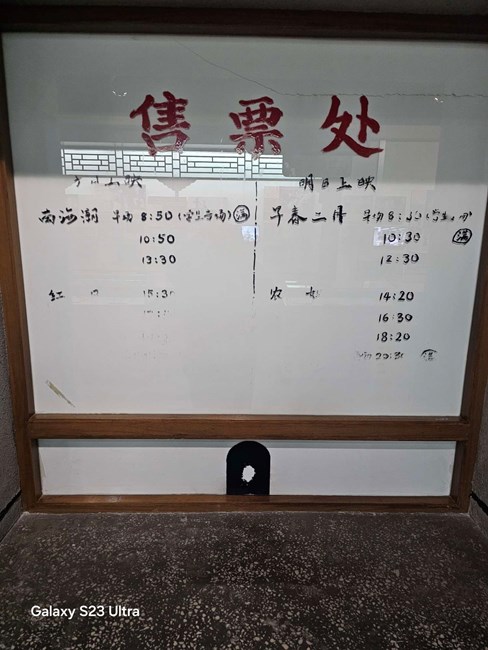 售票处
上映
南海潮 早场 8:50 (学生专场) 满
10:50
13:30
红 日 15:3
明日上映
早春二月 早场 8:30 (学生 场)
10:30 满
12:30
农 奴 14:20
16:30
18:20
20:30 满
Galaxy S23 Ultra